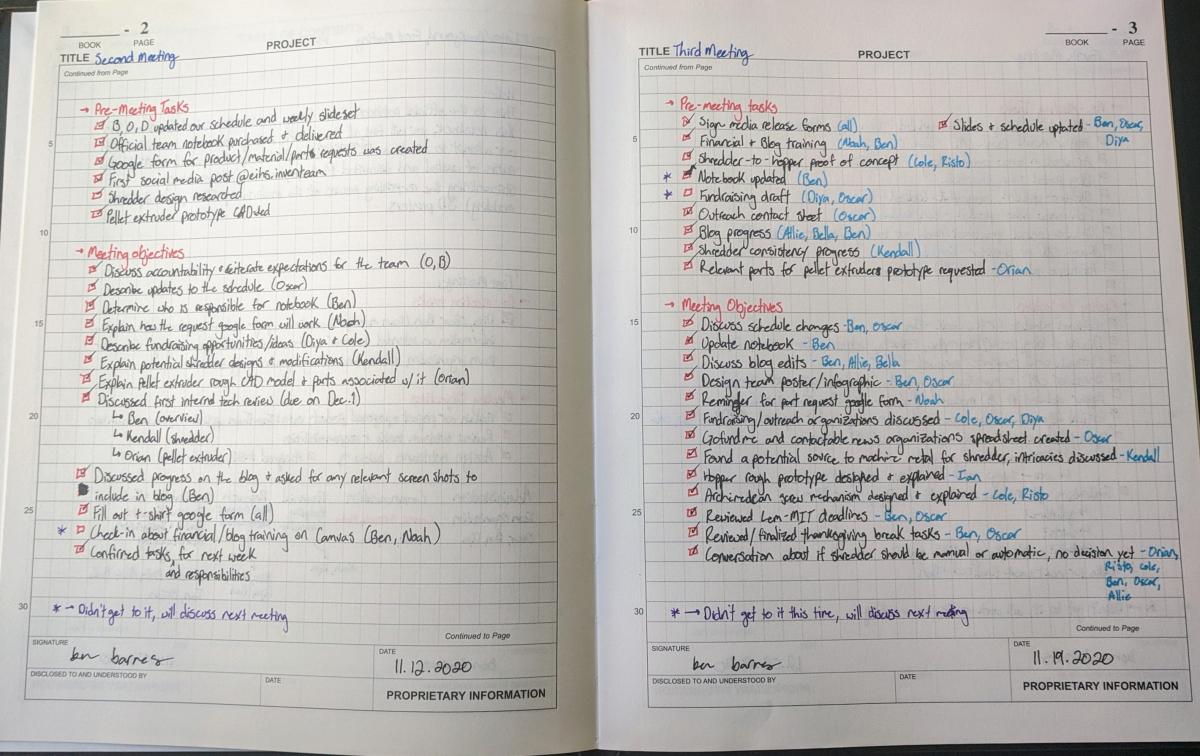 - 2
BOOK PAGE
PROJECT
TITLE Second Meeting
Continued from Page
→ Pre-Meeting Tasks
B, O, D updated our schedule and weekly slideset
5 Official team notebook purchased + delivered
Google form for product/material/parts requests was created
First social media post @eihs.inventeam
Shredder design researched
Pellet extruder prototype CADded
10
→ Meeting objectives
Discuss accountability + reiterate expectations for the team (O, B)
Describe updates to the schedule (Oscar)
Determine who is responsible for notebook (Ben)
15 Explain how the request google form will work (Noah)
Describe fundraising opportunities/ideas (Diya + Cole)
Explain potential shredder designs + modifications (Kendall)
Explain pellet extruder rough CAD model + parts associated w/ it (Orian)
Discussed first internal tech review (due on Dec. 1)
20 ↳ Ben (overview)
↳ Kendall (shredder)
↳ Orian (pellet extruder)
Discussed progress on the blog + asked for any relevant screen shots to
include in blog (Ben)
25 Fill out t-shirt google form (all)
* Check-in about financial/blog training on Canvas (Ben, Noah)
Confirmed tasks, for next week
and responsibilities
30 * → Didn't get to it, will discuss next meeting
Continued to Page
SIGNATURE
ben barnes
DATE
11.12.2020
DISCLOSED TO AND UNDERSTOOD BY
DATE
PROPRIETARY INFORMATION
- 3
BOOK PAGE
TITLE Third Meeting
PROJECT
Continued from Page
→ Pre-meeting tasks
Sign media release forms (all)
Slides + schedule updated - Ben, Oscar,
Diya
5 Financial + Blog training (Noah, Ben)
Shredder-to-hopper proof of concept (Cole, Risto)
* Notebook updated (Ben)
* Fundraising draft (Diya, Oscar)
Outreach contact sheet (Oscar)
10 Blog progress (Allie, Bella, Ben)
Shredder consistency progress (Kendall)
Relevant parts for pellet extruders prototype requested - Orian
→ Meeting Objectives
15 Discuss schedule changes - Ben, Oscar
Update notebook - Ben
Discuss blog edits - Ben, Allie, Bella
Design team poster/infographic - Ben, Oscar
Reminder for part request google form - Noah
20 Fundraising/outreach organizations discussed - Cole, Oscar, Diya
Gofundme and contactable news organizations spreadsheet created - Oscar
Found a potential source to machine metal for shredder, intricacies discussed - Kendall
Hopper rough prototype designed + explained - Ian
Archimedean screw mechanism designed + explained - Cole, Risto
25 Reviewed Lem-MIT deadlines - Ben, Oscar
Reviewed/finalized thanksgiving break tasks - Ben, Oscar
Conversation about if shredder should be manual or automatic, no decision yet - Orian,
Risto, Cole,
Ben, Oscar,
Allie
30 * → Didn't get to it this time, will discuss next meeting
Continued to Page
SIGNATURE
ben barnes
DATE
11.19.2020
DISCLOSED TO AND UNDERSTOOD BY
DATE
PROPRIETARY INFORMATION